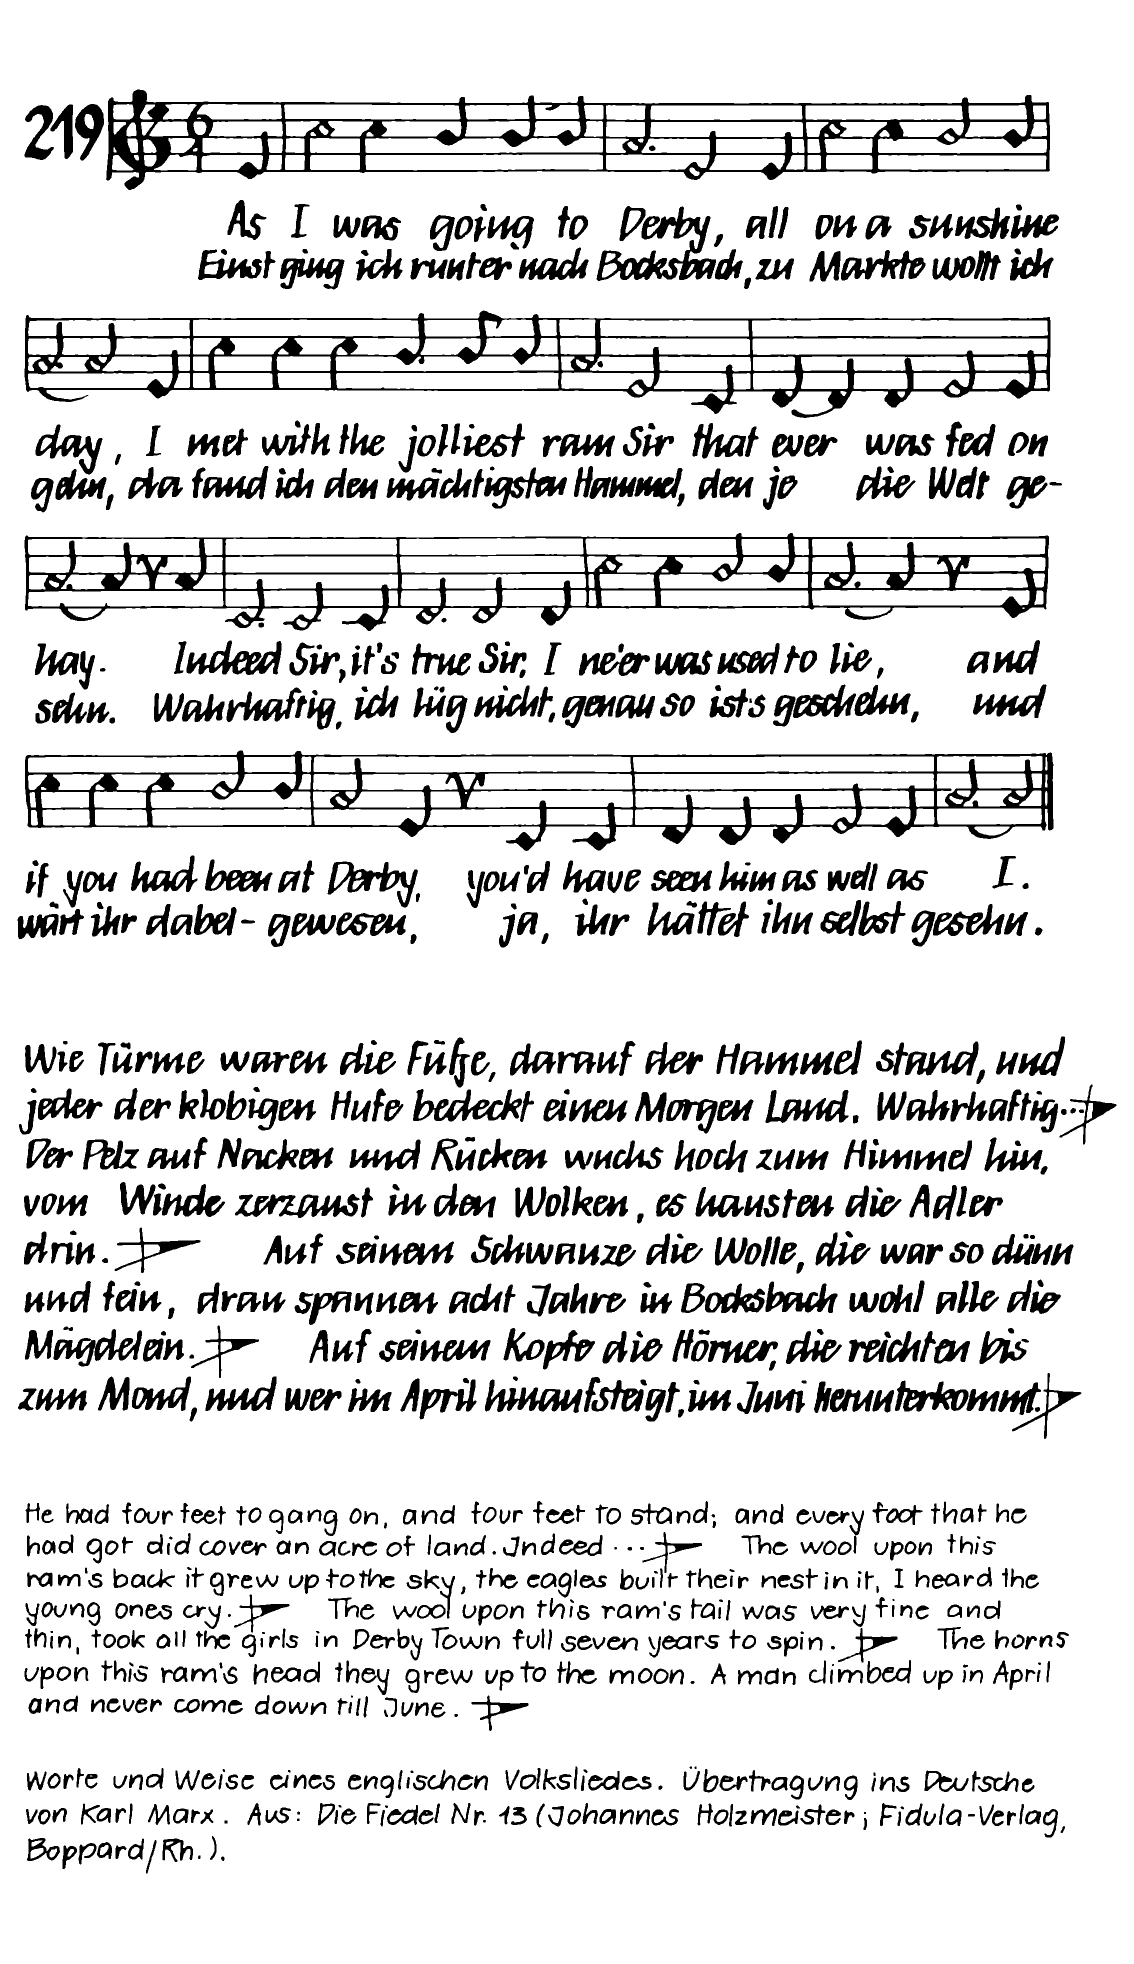 219
6
As I was going to Derby, all on a sunshine
Einst ging ich runter nach Bocksbach, zu Markte wollt ich
day, I met with the jolliest ram Sir that ever was fed on
gehn, da fand ich den mächtigsten Hammel, den je die Welt ge-
hay. Indeed Sir, it's true Sir, I ne'er was used to lie, and
sehn. Wahrhaftig, ich lüg nicht, genau so ist's geschehn, und
if you had been at Derby, you'd have seen him as well as I.
wärt ihr dabei-gewesen, ja, ihr hättet ihn selbst gesehn.
Wie Türme waren die Füße, darauf der Hammel stand, und
jeder der klobigen Hufe bedeckt einen Morgen Land. Wahrhaftig...
Der Pelz auf Nacken und Rücken wuchs hoch zum Himmel hin,
vom Winde zerzaust in den Wolken, es hausten die Adler
drin. Auf seinem Schwanze die Wolle, die war so dünn
und fein, dran spannen acht Jahre in Bocksbach wohl alle die
Mägdelein. Auf seinem Kopfe die Hörner, die reichten bis
zum Mond, und wer im April hinaufsteigt, im Juni herunterkommt.
He had four feet to gang on, and four feet to stand; and every foot that he
had got did cover an acre of land. Indeed ... The wool upon this
ram's back it grew up to the sky, the eagles built their nest in it, I heard the
young ones cry. The wool upon this ram's tail was very fine and
thin, took all the girls in Derby Town full seven years to spin. The horns
upon this ram's head they grew up to the moon. A man climbed up in April
and never come down till June.
Worte und Weise eines englischen Volksliedes. Übertragung ins Deutsche
von Karl Marx. Aus: Die Fiedel Nr. 13 (Johannes Holzmeister; Fidula-Verlag,
Boppard/Rh.).